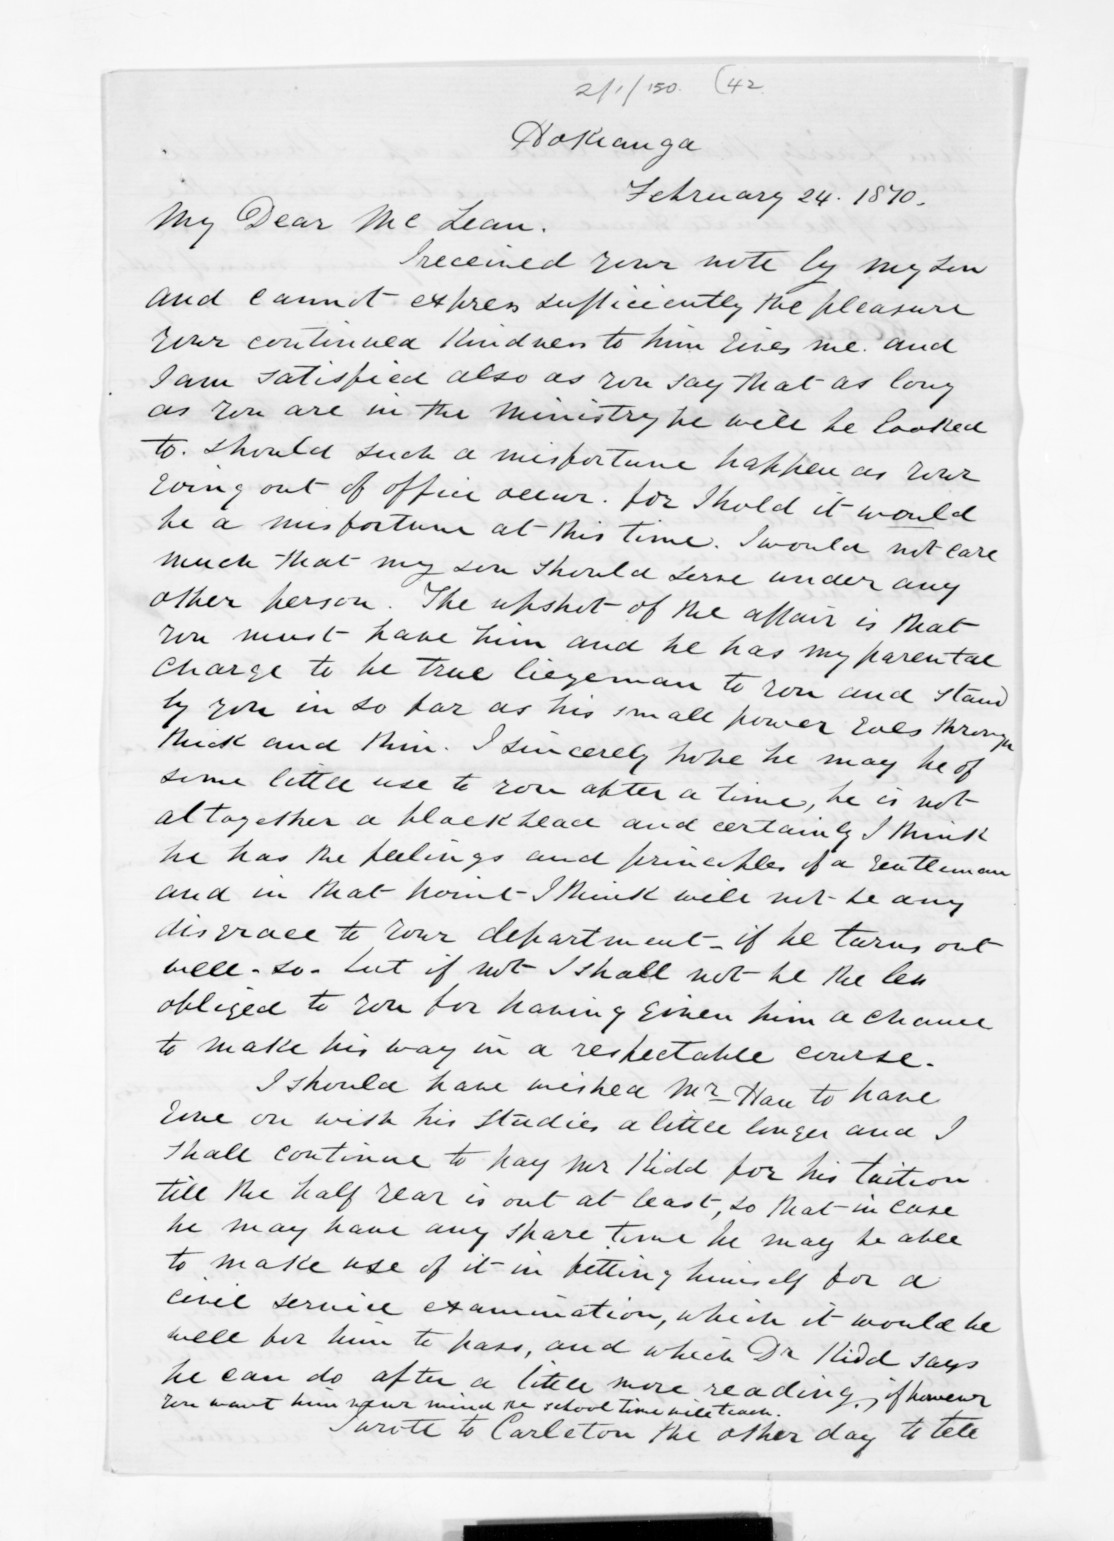 2/1/150. (42
Hokianga
February 24. 1870.
My Dear McLean.
I received your note by my son
and cannot express sufficiently the pleasure
your continued kindness to him gives me. and
I am satisfied also as you say that as long
as you are in the ministry he will be looked
to. should such a misfortune happen as your
going out of office occur. for I hold it would
be a misfortune at this time. I would not care
much that my son should serve under any
other person. The upshot of the affair is that
you must have him and he has my parental
charge to be true liegeman to you and stand
by you in so far as his small power goes through
thick and thin. I sincerely hope he may be of
some little use to you after a time, he is not
altogether a blockhead and certainly I think
he has the feelings and principles of a gentleman
and in that point I think will not be any
disgrace to your department - if he turns out
well - so - but if not I shall not be the less
obliged to you for having given him a chance
to make his way in a respectable course.
I should have wished Mr Hau to have
gone on with his studies a little longer and I
shall continue to pay Mr Kidd for his tuition
till the half year is out at least, so that in case
he may have any spare time he may be able
to make use of it in fitting himself for a
civil service examination, which it would be
well for him to pass, and which Dr Kidd says
he can do after a little more reading; if however
you want him never mind the school time will teach.
I wrote to Carleton the other day to tell